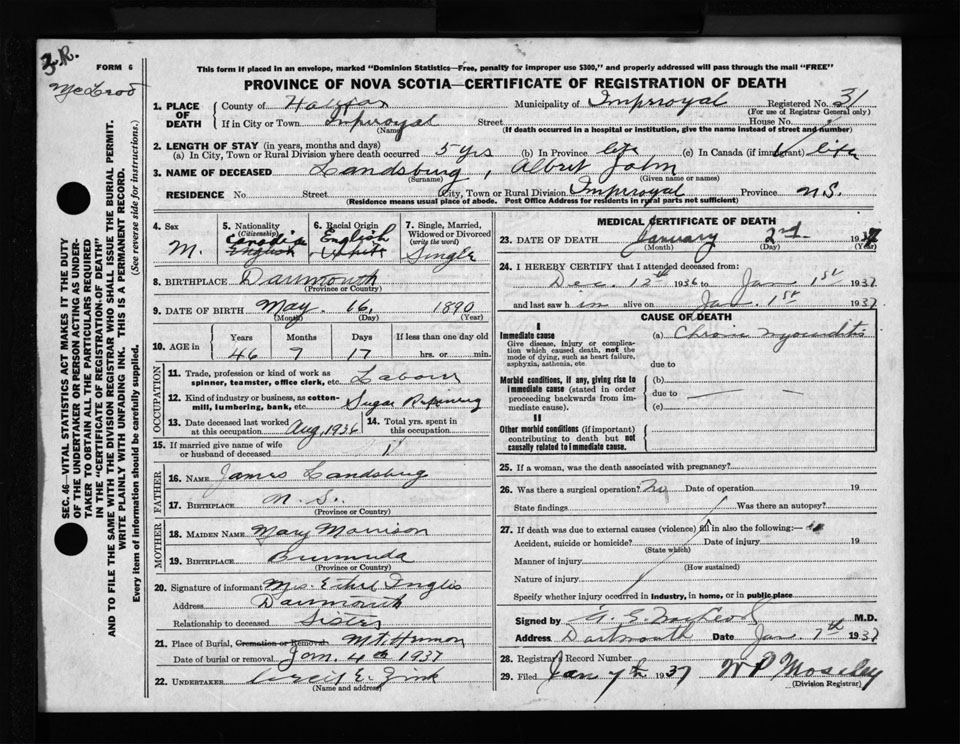 J.R.
FORM 6
McLeod
This form if placed in an envelope, marked "Dominion Statistics—Free, penalty for improper use $300," and properly addressed will pass through the mail "FREE"
PROVINCE OF NOVA SCOTIA—CERTIFICATE OF REGISTRATION OF DEATH
1. PLACE OF DEATH
County of Halifax Municipality of Improyal Registered No. 31
(For use of Registrar General only)
If in City or Town Improyal Street House No.
(Name) (If death occurred in a hospital or institution, give the name instead of street and number)
2. LENGTH OF STAY (in years, months and days)
(a) In City, Town or Rural Division where death occurred 5 yrs (b) In Province life (c) In Canada (if immigrant) life
3. NAME OF DECEASED Landsburg, Albert John
(Surname) (Given name or names)
RESIDENCE No. Street City, Town or Rural Division Improyal Province N.S.
(Residence means usual place of abode. Post Office Address for residents in rural parts not sufficient)
4. Sex
M.
5. Nationality
(Citizenship)
Canadian
English
6. Racial Origin
English
White
7. Single, Married, Widowed or Divorced
(write the word)
Single
8. BIRTHPLACE Darmouth
(Province or Country)
9. DATE OF BIRTH May. 16, 1890
(Month) (Day) (Year)
10. AGE in
Years Months Days If less than one day old
46 7 17 hrs. or min.
OCCUPATION
11. Trade, profession or kind of work as spinner, teamster, office clerk, etc. Labour
12. Kind of industry or business, as cotton-mill, lumbering, bank, etc. Sugar Refining
13. Date deceased last worked at this occupation Aug, 1936
14. Total yrs. spent in this occupation
15. If married give name of wife or husband of deceased
FATHER
16. NAME James Landsburg
17. BIRTHPLACE N.S.
(Province or Country)
MOTHER
18. MAIDEN NAME Mary Morrison
19. BIRTHPLACE Burmuda
(Province or Country)
20. Signature of informant Mrs. Ethel Inglis
Address Darmouth
Relationship to deceased Sister
21. Place of Burial, Cremation or Removal Mt. Hermon
Date of burial or removal Jan. 4th 1937
22. UNDERTAKER E. Zink
(Name and address)
MEDICAL CERTIFICATE OF DEATH
23. DATE OF DEATH January 2nd 1937
(Month) (Day) (Year)
24. I HEREBY CERTIFY that I attended deceased from:
Dec. 12th 1936 to Jan 1st 1937
and last saw him alive on Jan. 1st 1937
CAUSE OF DEATH
I
Immediate cause
Give disease, injury or complication which caused death, not the mode of dying, such as heart failure, asphyxia, asthenia, etc
(a) Chronic myocarditis
due to
Morbid conditions, if any, giving rise to immediate cause (stated in order proceeding backwards from immediate cause).
(b)
due to
(c)
II
Other morbid conditions (if important) contributing to death but not causally related to immediate cause.
25. If a woman, was the death associated with pregnancy?
26. Was there a surgical operation? No Date of operation 19
State findings Was there an autopsy?
27. If death was due to external causes (violence) fill in also the following:—
Accident, suicide or homicide? Date of injury 19
(State which)
Manner of injury
(How sustained)
Nature of injury
Specify whether injury occurred in industry, in home, or in public place
Signed by McLeod M.D.
Address Dartmouth Date Jan. 7th 1937
28. Registrar's Record Number
29. Filed Jan 7th 1937 Mosely
(Division Registrar)
SEC. 46—VITAL STATISTICS ACT MAKES IT THE DUTY
OF THE UNDERTAKER OR PERSON ACTING AS UNDER-
TAKER TO OBTAIN ALL THE PARTICULARS REQUIRED
IN THE "CERTIFICATE OF REGISTRATION OF DEATH"
AND TO FILE THE SAME WITH THE DIVISION REGISTRAR WHO SHALL ISSUE THE BURIAL PERMIT.
WRITE PLAINLY WITH UNFADING INK. THIS IS A PERMANENT RECORD.
Every item of information should be carefully supplied. (See reverse side for instructions.)